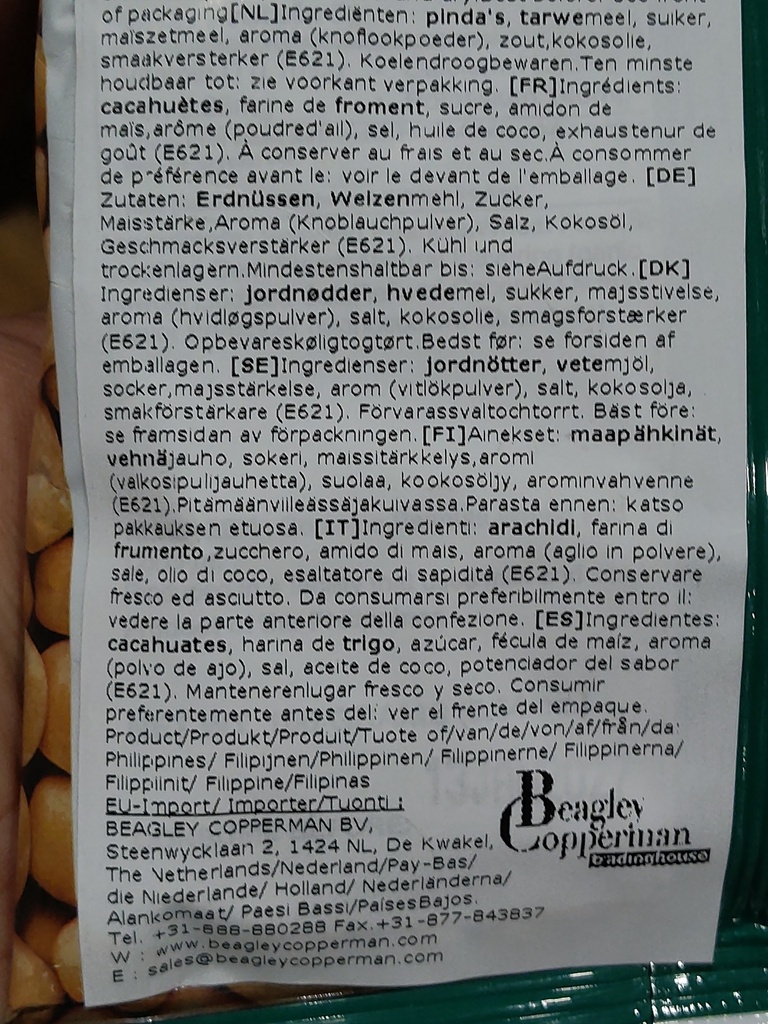 of packaging[NL]Ingrediënten: pinda's, tarwemeel, suiker,
maïszetmeel, aroma (knoflookpoeder), zout,kokosolie,
smaakversterker (E621). Koelendroogbewaren.Ten minste
houdbaar tot: zie voorkant verpakking. [FR]Ingrédients:
cacahuètes, farine de froment, sucre, amidon de
maïs,arôme (poudred'ail), sel, huile de coco, exhaustenur de
goût (E621). À conserver au frais et au sec.À consommer
de préférence avant le: voir le devant de l'emballage. [DE]
Zutaten: Erdnüssen, Weizenmehl, Zucker,
Maisstärke,Aroma (Knoblauchpulver), Salz, Kokosöl,
Geschmacksverstärker (E621). Kühl und
trockenlagern.Mindestenshaltbar bis: sieheAufdruck.[DK]
Ingredienser: jordnødder, hvedemel, sukker, majsstivelse,
aroma (hvidløgspulver), salt, kokosolie, smagsforstærker
(E621). Opbevareskøligtogtørt.Bedst før: se forsiden af
emballagen. [SE]Ingredienser: jordnötter, vetemjöl,
socker,majsstärkelse, arom (vitlökpulver), salt, kokosolja,
smakförstärkare (E621). Förvarassvaltochtorrt. Bäst före:
se framsidan av förpackningen.[FI]Ainekset: maapähkinät,
vehnäjauho, sokeri, maissitärkkelys,aromi
(valkosipulijauhetta), suolaa, kookosöljy, arominvahvenne
(E621).Pitämäänviileässäjakuivassa.Parasta ennen: katso
pakkauksen etuosa. [IT]Ingredienti: arachidi, farina di
frumento,zucchero, amido di mais, aroma (aglio in polvere),
sale, olio di coco, esaltatore di sapidità (E621). Conservare
fresco ed asciutto. Da consumarsi preferibilmente entro il:
vedere la parte anteriore della confezione. [ES]Ingredientes:
cacahuates, harina de trigo, azúcar, fécula de maíz, aroma
(polvo de ajo), sal, aceite de coco, potenciador del sabor
(E621). Mantenerenlugar fresco y seco. Consumir
preferentemente antes del: ver el frente del empaque.
Product/Produkt/Produit/Tuote of/van/de/von/af/från/da:
Philippines/ Filipijnen/Philippinen/ Filippinerne/ Filippinerna/
Filippiinit/ Filippine/Filipinas
EU-Import/ Importer/Tuonti :
BEAGLEY COPPERMAN BV,
Steenwycklaan 2, 1424 NL, De Kwakel,
The Netherlands/Nederland/Pay-Bas/
die Niederlande/ Holland/ Nederländerna/
Alankomaat/ Paesi Bassi/PaísesBajos.
Tel. +31-888-880288 Fax.+31-877-843837
W : www.beagleycopperman.com
E : sales@beagleycopperman.com
Beagley
Copperman
tradinghouse